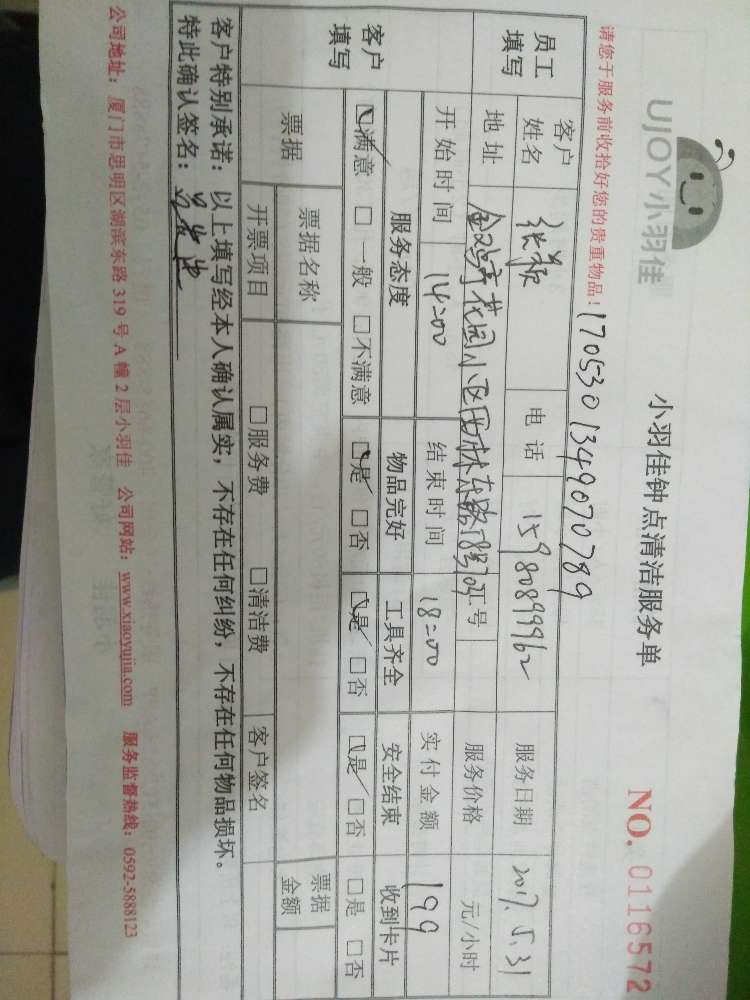 UJOY小羽佳
小羽佳钟点清洁服务单
NO. 0116572
请您于服务前收拾好您的贵重物品!
1705301349070789
员工填写
客户姓名 张 电话 15980899962 服务日期 2017.5.31
地址 金鸡亭花园小区西林东路 号 服务价格 元/小时
开始时间 14:00 结束时间 18:00 实付金额 199
客户填写
服务态度 物品完好 工具齐全 安全结束 收到卡片
☑满意 □一般 □不满意 ☑是 □否 ☑是 □否 ☑是 □否 □是 □否
票据 票据名称 票据金额
开票项目 □服务费 □清洁费 客户签名
客户特别承诺:以上填写经本人确认属实,不存在任何纠纷,不存在任何物品损坏。
特此确认签名:
公司地址:厦门市思明区湖滨东路319号A幢2层小羽佳 公司网站:www.xiaoyujia.com 服务监督热线:0592-5888123